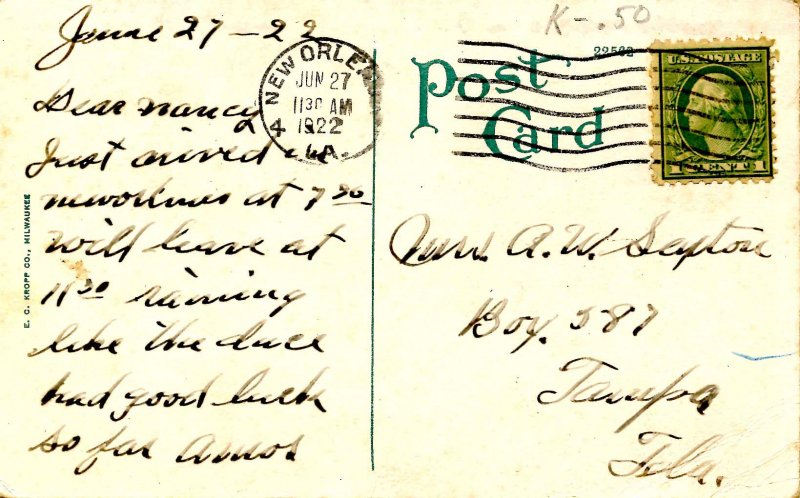 June 27-22
Dear nancy
Just arived in
neworlines at 7 30
will leave at
11 30 raining
like the duce
had good luck
so far amos
E. C. KROPP CO., MILWAUKEE
K-.50
22562
Post
Card
NEW ORLEANS
JUN 27
1130 AM
1922
4 LA.
U.S. POSTAGE
1 CENT 1
Mrs. A. W. Sexton
Box. 587
Tampa
Fla.